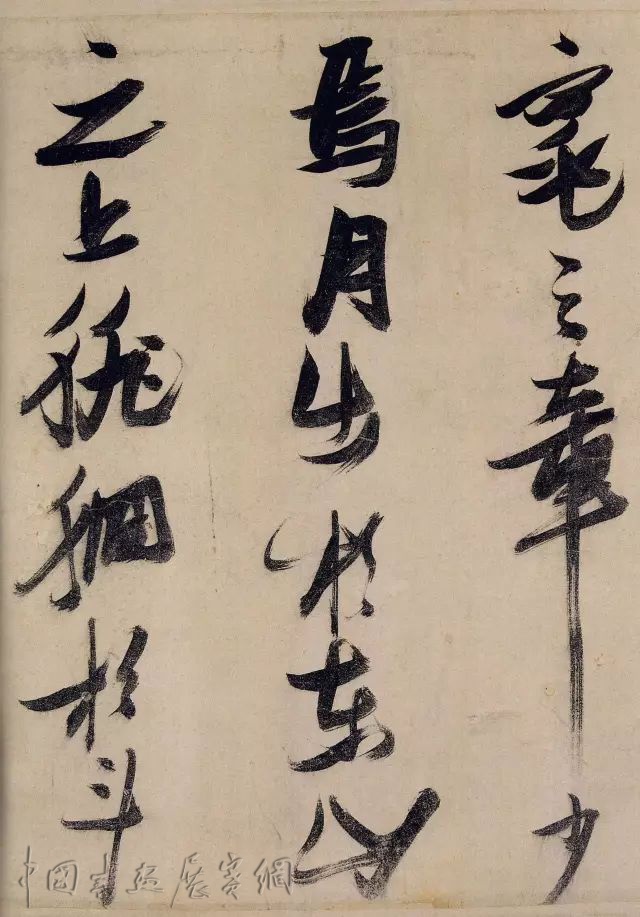 窕之章少
焉月出於東山
之上徘徊於斗
中国書画展賽網